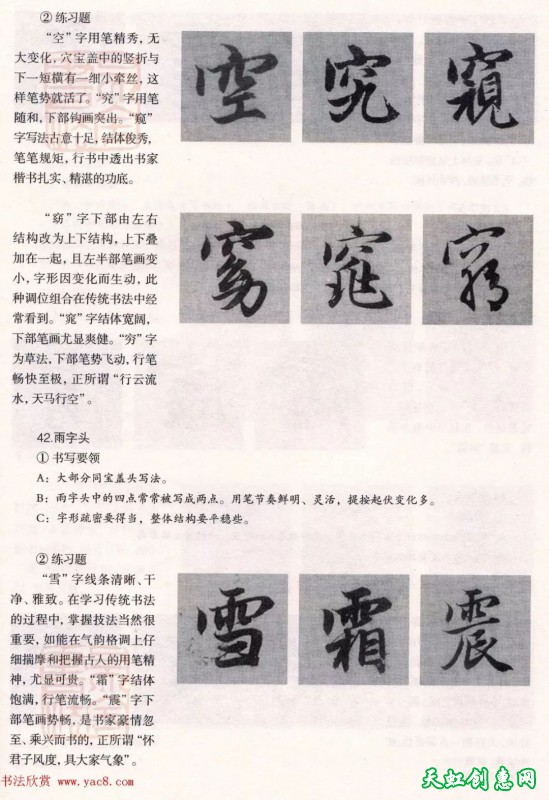 ② 练习题
“空”字用笔精秀，无
大变化，穴宝盖中的竖折与
下一短横有一细小牵丝，这
样笔势就活了。“究”字用笔
随和，下部钩画突出。“窥”
字写法古意十足，结体俊秀，
笔笔规矩，行书中透出书家
楷书扎实、精湛的功底。
空 究 窥
“窈”字下部由左右
结构改为上下结构，上下叠
加在一起，且左半部笔画变
小，字形因变化而生动，此
种调位组合在传统书法中经
常看到。“窕”字结体宽阔，
下部笔画尤显爽健。“穷”字
为草法，下部笔势飞动，行笔
畅快至极，正所谓“行云流
水，天马行空”。
窈 窕 窮
42.雨字头
① 书写要领
A：大部分同宝盖头写法。
B：雨字头中的四点常常被写成两点。用笔节奏鲜明、灵活，提按起伏变化多。
C：字形疏密要得当，整体结构要平稳些。
② 练习题
“雪”字线条清晰、干
净、雅致。在学习传统书法
的过程中，掌握技法当然很
重要，如能在气韵格调上仔
细揣摩和把握古人的用笔精
神，尤显可贵。“霜”字结体
饱满，行笔流畅。“震”字下
部笔画势畅，是书家豪情忽
至、乘兴而书的，正所谓“怀
君子风度，具大家气象”。
雪 霜 震
书法欣赏 www.yac8.com
天虹创意网